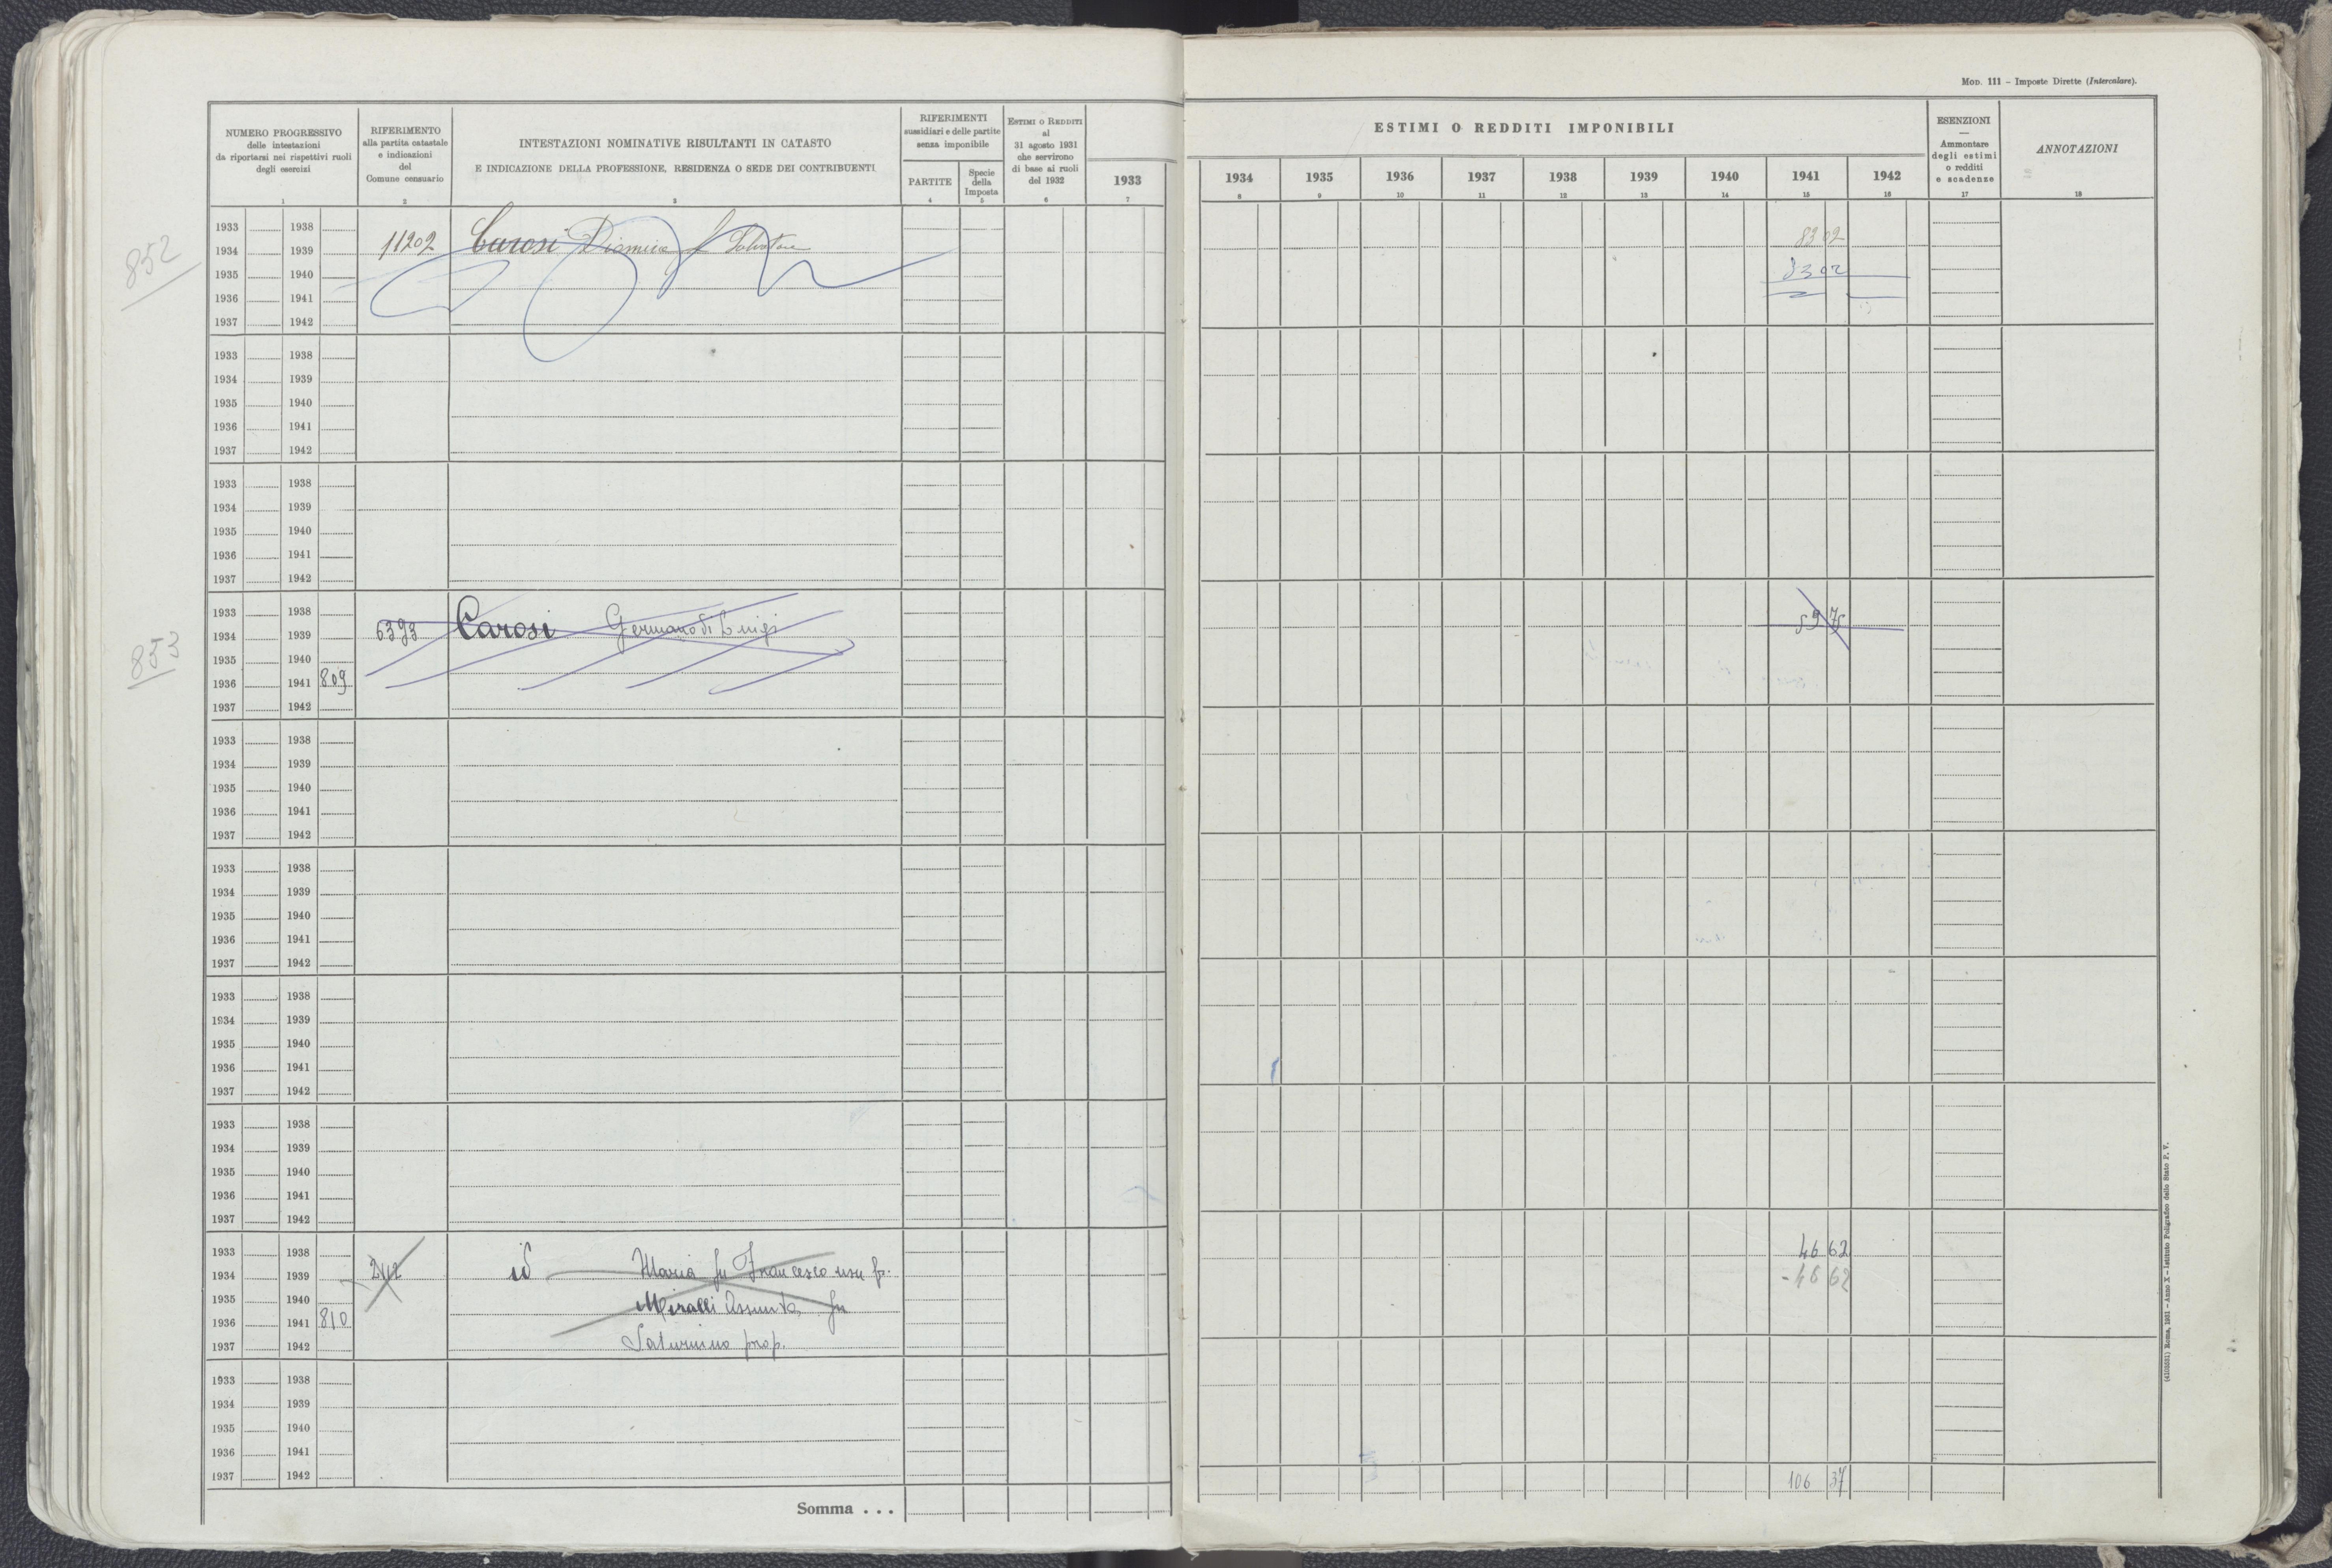 Mod. 111 – Imposte Dirette (Intercalare).
NUMERO PROGRESSIVO
delle intestazioni
da riportarsi nei rispettivi ruoli
degli esercizi
1
RIFERIMENTO
alla partita catastale
e indicazioni
del
Comune censuario
2
INTESTAZIONI NOMINATIVE RISULTANTI IN CATASTO
E INDICAZIONE DELLA PROFESSIONE, RESIDENZA O SEDE DEI CONTRIBUENTI
3
RIFERIMENTI
sussidiari e delle partite
senza imponibile
PARTITE
4
Specie
della
Imposta
5
Estimi o Redditi
al
31 agosto 1931
che servirono
di base ai ruoli
del 1932
6
1933
7
ESTIMI O REDDITI IMPONIBILI
1934 1935 1936 1937 1938 1939 1940 1941 1942
8 9 10 11 12 13 14 15 16
ESENZIONI
—
Ammontare
degli estimi
o redditi
e scadenze
17
ANNOTAZIONI
18
852
1933 1938
1934 1939 11202 Carosi f Salvatore 83 02
1935 1940 83 02
1936 1941
1937 1942
1933 1938
1934 1939
1935 1940
1936 1941
1937 1942
1933 1938
1934 1939
1935 1940
1936 1941
1937 1942
853
1933 1938
1934 1939 6393 Carosi Germano di Luigi 59 75
1935 1940
1936 1941 809
1937 1942
1933 1938
1934 1939
1935 1940
1936 1941
1937 1942
1933 1938
1934 1939
1935 1940
1936 1941
1937 1942
1933 1938
1934 1939
1935 1940
1936 1941
1937 1942
1933 1938
1934 1939
1935 1940
1936 1941
1937 1942
1933 1938 46 62
1934 1939 id Maria fu Francesco usu fr. - 46 62
1935 1940 Miralli Assunta fu
1936 1941 810
1937 1942 Saturnino prop.
1933 1938
1934 1939
1935 1940
1936 1941
1937 1942
106 37
Somma . . .
(4105581) Roma, 1931 – Anno X – Istituto Poligrafico dello Stato P. V.